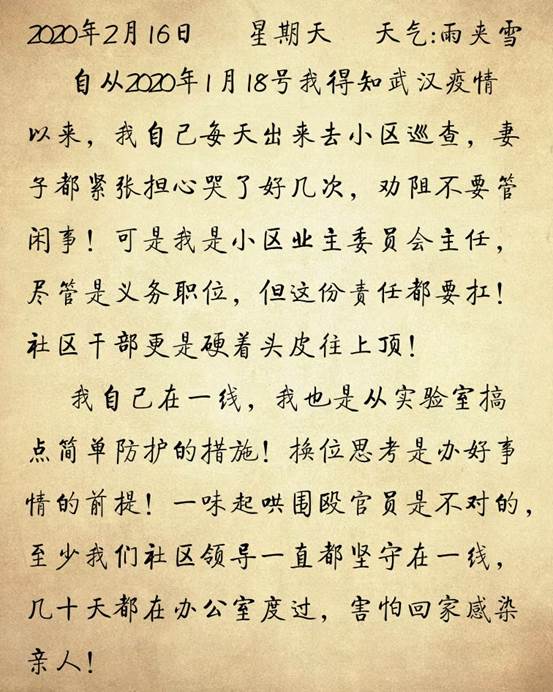 2020年2月16日 星期天 天气:雨夹雪
自从2020年1月18号我得知武汉疫情
以来，我自己每天出来去小区巡查，妻
子都紧张担心哭了好几次，劝阻不要管
闲事！可是我是小区业主委员会主任，
尽管是义务职位，但这份责任都要扛！
社区干部更是硬着头皮往上顶！
我自己在一线，我也是从实验室搞
点简单防护的措施！换位思考是办好事
情的前提！一味起哄围殴官员是不对的，
至少我们社区领导一直都坚守在一线，
几十天都在办公室度过，害怕回家感染
亲人！